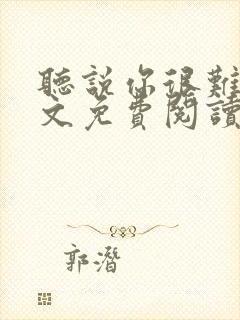 聽說你很難
文免費閱讀
郭潛